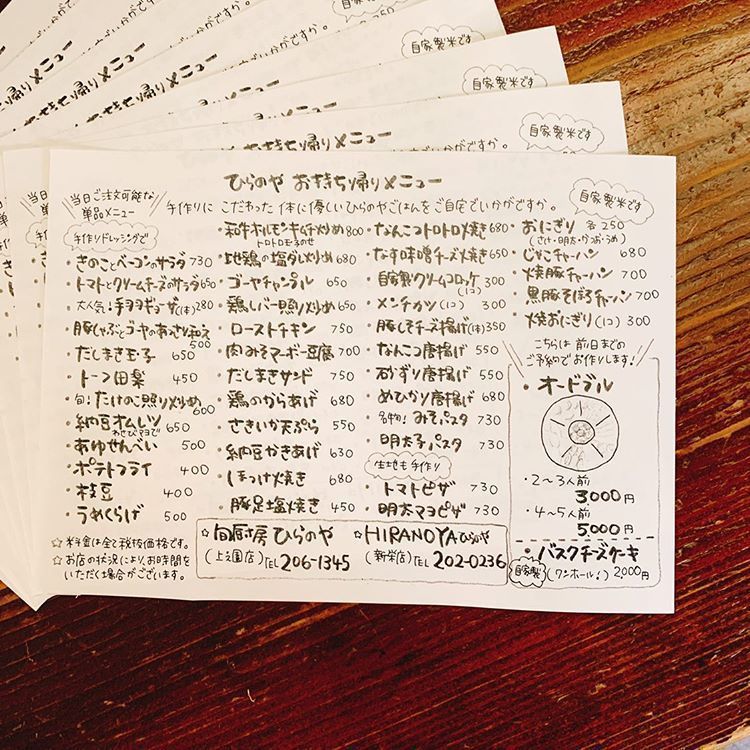 ひらのや お持ち帰りメニュー
手作りに こだわった 体に優しいひらのやごはんをご自宅でいかがですか。
自家製米です
当日ご注文可能な
単品メニュー
手作りドレッシングで
・きのことベーコンのサラダ 730
・トマトとクリームチーズのサラダ 650
・大人気!手羽ギョーザ(1本)280
・豚しゃぶとゴーヤのあっさり和え 500
・だしまき玉子 650
・トーフ田楽 450
・旬!たけのこ照り炒め 600
・納豆オムレツ 650
わさびマヨで
・あゆせんべい 500
・ポテトフライ 400
・枝豆 400
・うめくらげ 500
☆料金は全て税抜価格です。
☆お店の状況により、お時間を
いただく場合がございます。
・和牛ホルモンキムチ炒め 800
トロトロ玉子のせ
・地鶏の塩ダレ炒め 680
・ゴーヤチャンプル 650
・鶏レバー照り炒め 650
・ローストチキン 750
・肉みそマーボー豆腐 700
・だしまきサンド 750
・鶏のからあげ 680
・さきいか天ぷら 550
・納豆かきあげ 630
・ほっけ焼き 680
・豚足塩焼き 450
・なんこつトロトロ焼き 680
・なす味噌チーズ焼き 650
・自家製クリームコロッケ(1コ) 300
・メンチカツ(1コ) 300
・豚しそチーズ揚げ(1本)350
・なんこつ唐揚げ 550
・砂ずり唐揚げ 550
・めひかり唐揚げ 680
・名物!みそパスタ 730
・明太子パスタ 730
生地も手作り
・トマトピザ 730
・明太マヨピザ 730
・おにぎり 各250
(さけ・明太・かつお・うめ)
・じゃこチャーハン 680
・焼豚チャーハン 700
・黒豚そぼろチャーハン 700
・焼おにぎり(1コ) 300
こちらは前日までの
ご予約でお作りします!
・オードブル
・2~3人前
3000円
・4~5人前
5000円
・バスクチーズケーキ
自家製 (ワンホール!) 2,000円
☆旬厨房 ひらのや
(上之園店)TEL 206-1345
☆HIRANOYAひらのや
(新栄店)TEL 202-0236